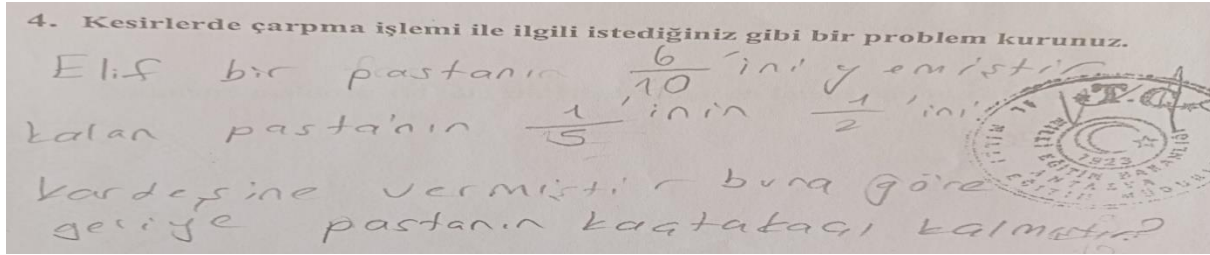 4. Kesirlerde çarpma işlemi ile ilgili istediğiniz gibi bir problem kurunuz.
Elif bir pastanın 6/10 'ini yemiştir
kalan pasta'nın 1/5 'inin 1/2 'ini
kardeşine vermiştir buna göre
geriye pastanın kaçtakaçı kalmıştır?
T.C.
1923
ANTALYA